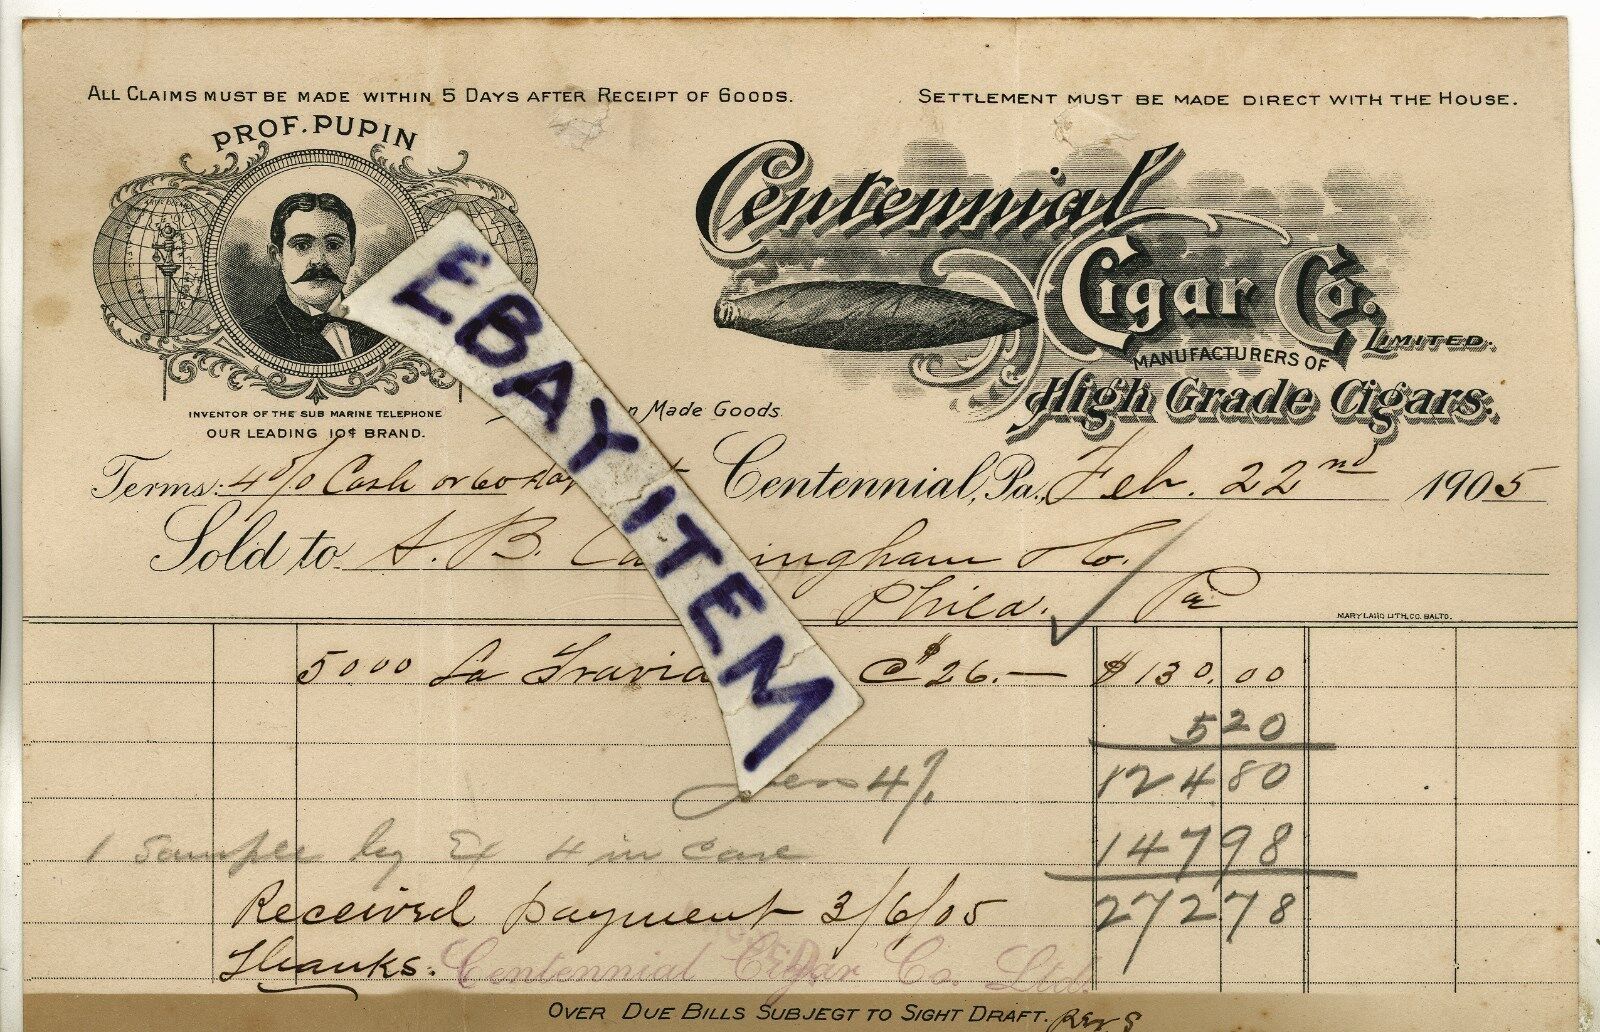 ALL CLAIMS MUST BE MADE WITHIN 5 DAYS AFTER RECEIPT OF GOODS.
SETTLEMENT MUST BE MADE DIRECT WITH THE HOUSE.
PROF. PUPIN
INVENTOR OF THE SUB MARINE TELEPHONE
OUR LEADING 10¢ BRAND.
n Made Goods.
Centennial
Cigar Co.
LIMITED.
MANUFACTURERS OF
High Grade Cigars.
EBAY ITEM
Terms: 4 % Cash or 60
Centennial, Pa., Feb. 22nd 1905
Sold to A. B. Cu ingham & Co.
Phila. Pa
MARYLAND LITH. CO. BALTO.
5000 La Travia @ $26.— $130.00
520
Less 4% 124 80
1 Sample by Ex 4 in case 147 98
Received payment 3/6/05 272 78
Thanks. Centennial Cigar Co. Ltd.
OVER DUE BILLS SUBJEGT TO SIGHT DRAFT.